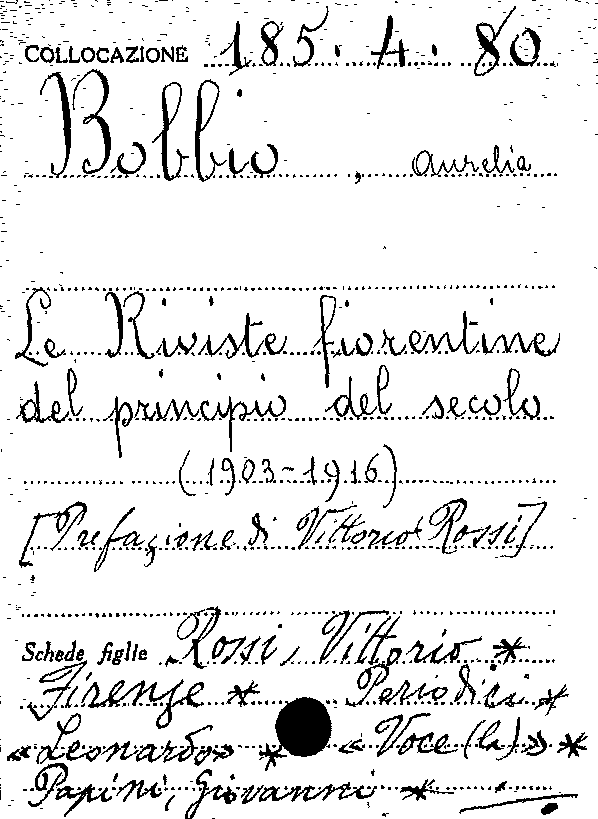 COLLOCAZIONE 185. 4. 80
Bobbio, Aurelia
Le Riviste fiorentine
del principio del secolo
(1903-1916)
[Prefazione di Vittorio Rossi]
Schede figlie Rossi, Vittorio *
Firenze * Periodici *
«Leonardo» * «Voce (la)» *
Papini, Giovanni *